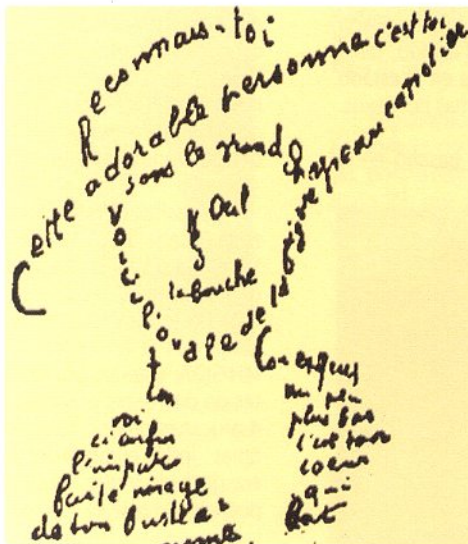 Reconnais-toi
Cette adorable personne c'est toi
sous le grand chapeau canotier
Oeil
la bouche
Voici l'ovale de ta figure
ton
cou exquis
voi
ci enfin
l'impar
faite image
de ton buste a
un peu
plus bas
c'est ton
coeur
qui
bat